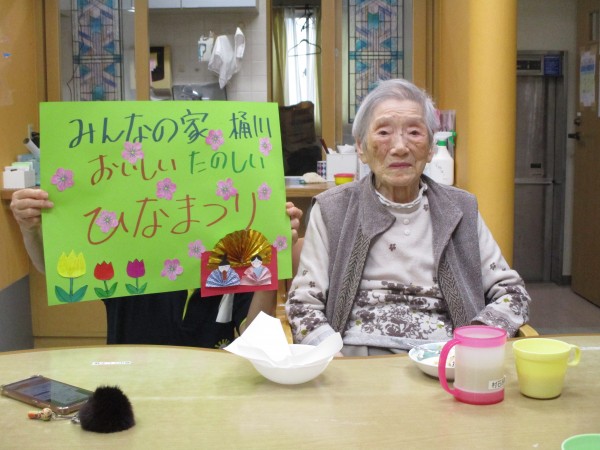 みんなの家 桶川
おいしい たのしい
ひなまつり